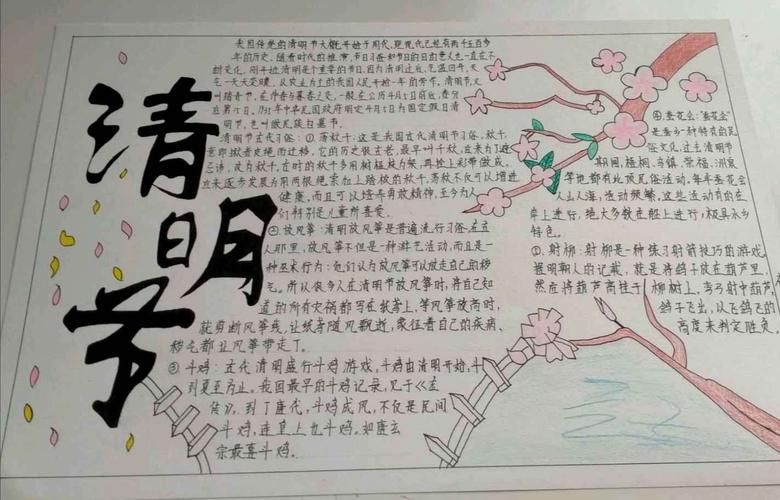 清明节
我国传统的清明节大概开始于周代,距现代已经有两千五百多
年的历史。随着时代的推演,节日习俗和节日的日的意义也一直在不
断变化。刚开始清明是个重要的节日,因为清明过后,气温回升,天
气一天天变暖,
叫踏青节,在仲春与暮春之交,一般在公历4月5日前后,春分
后第十五日。1935年中华民国政府明定4月5日为国定假日清
明节,也叫做民族扫墓节。
清明节古代习俗:①荡秋千:这是我国古代清明节习俗,秋千,
意即揪着皮绳而迁移。它的历史很古老,最早叫千秋,后来为了避
忌讳,改为秋千,古时的秋千多用树桠枝为架,再拴上彩带做成。
后来逐步发展为用两根绳索加上踏板的秋千,荡秋千不仅可以增进
健康,而且可以培养勇敢精神,至今为人
们特别是儿童所喜爱。
②放风筝:清明放风筝是普遍流行习俗,在古
人那里,放风筝不但是一种游艺活动,而且是一
种巫术行为:他们认为放风筝可以放走自己的秽
气。所以很多人在清明节放风筝时,将自己知
道的所有灾祸都写在纸鸢上,等风筝放高时,
就剪断风筝线,让纸鸢随风飘逝,象征着自己的疾病、
秽气都让风筝带走了。
③斗鸡:古代清明盛行斗鸡游戏,斗鸡由清明开始,斗
到夏至为止。我国最早的斗鸡记录,见于《左
传》,到了唐代,斗鸡成风,不仅是民间
斗鸡,连皇上也斗鸡。如唐玄
宗最喜斗鸡。
④蚕花会:"蚕花会"
是蚕乡一种特有的民
俗文化,过去清明节
期间,梧桐、乌镇、崇福、洲泉
等地都有此项民俗活动,每年蚕花会
人山人海,活动频繁,这些活动有的在
岸上进行,绝大多数在船上进行,极具水乡
特色。
射柳:射柳是一种练习射箭技巧的游戏。
据明朝人的记载,就是将鸽子放在葫芦里,
然后将葫芦高挂于柳树上,弯弓射中葫芦,
鸽子飞出,以飞鸽飞的
高度来判定胜负。